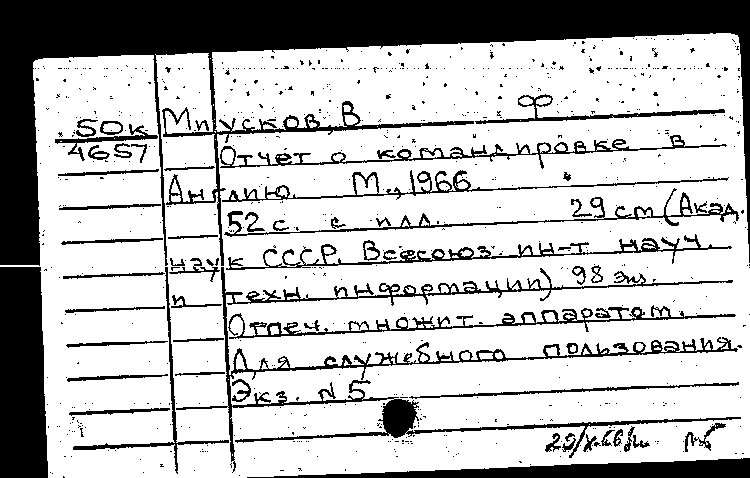 50к Миусков, В ф
4657 Отчет о командировке в
Англию. М., 1966.
52 с. с илл. 29 cm (Акад.
наук СССР. Всесоюз. ин-т науч.
и техн. информации) 98 экз.
Отпеч. множит. аппаратом.
Для служебного пользования.
Экз. N 5